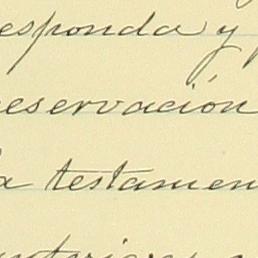 esponda y
eservación
a testamen